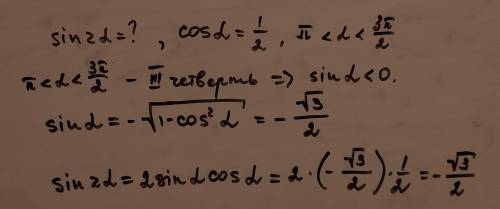 sin2α = ? , cosα = 1/2 , π < α < 3π/2
π < α < 3π/2 - III четверть => sinα < 0.
sinα = -√(1-cos²α) = - √3/2
sin2α = 2sinα cosα = 2 · (- √3/2) · 1/2 = - √3/2